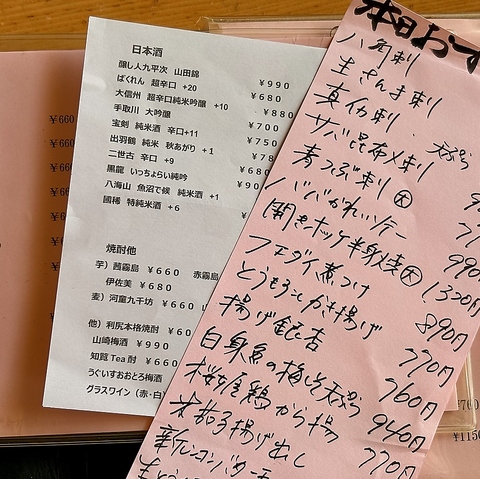 日本酒
醸し人九平次 山田錦 ¥990
ばくれん 超辛口 +20 ¥680
大信州 超辛口純米吟醸 +10 ¥880
手取川 大吟醸 ¥700
宝剣 純米酒 辛口+11 ¥750
出羽鶴 純米 秋あがり +1
二世古 辛口 +9
黒龍 いっちょらい純吟
八海山 魚沼で候 純米酒 +1
國稀 特純米酒 +6
焼酎他
芋) 茜霧島 ¥660 赤霧島
伊佐美 ¥680
麦) 河童九千坊 ¥660
他) 利尻本格焼酎 ¥60
山崎梅酒 ¥990
知覧Tea酎 ¥660
うぐいすおおとろ梅酒
グラスワイン (赤・白)
本日おす
八角刺
生さんま刺
真イカ刺
サバ昆布〆刺 天ぷら
青つぶ刺 大
ババがれいソテー
開きホッケ半身焼 大 990円
フエダイ煮つけ 1,320円
とうもろこしかき揚げ 890円
揚げ銀杏 770円
白身魚の梅しそ天ぷら 960円
桜姫鶏から揚 940円
米茄子揚げ出し 770円
新レンコンバター
¥660
¥660
¥660
¥1150